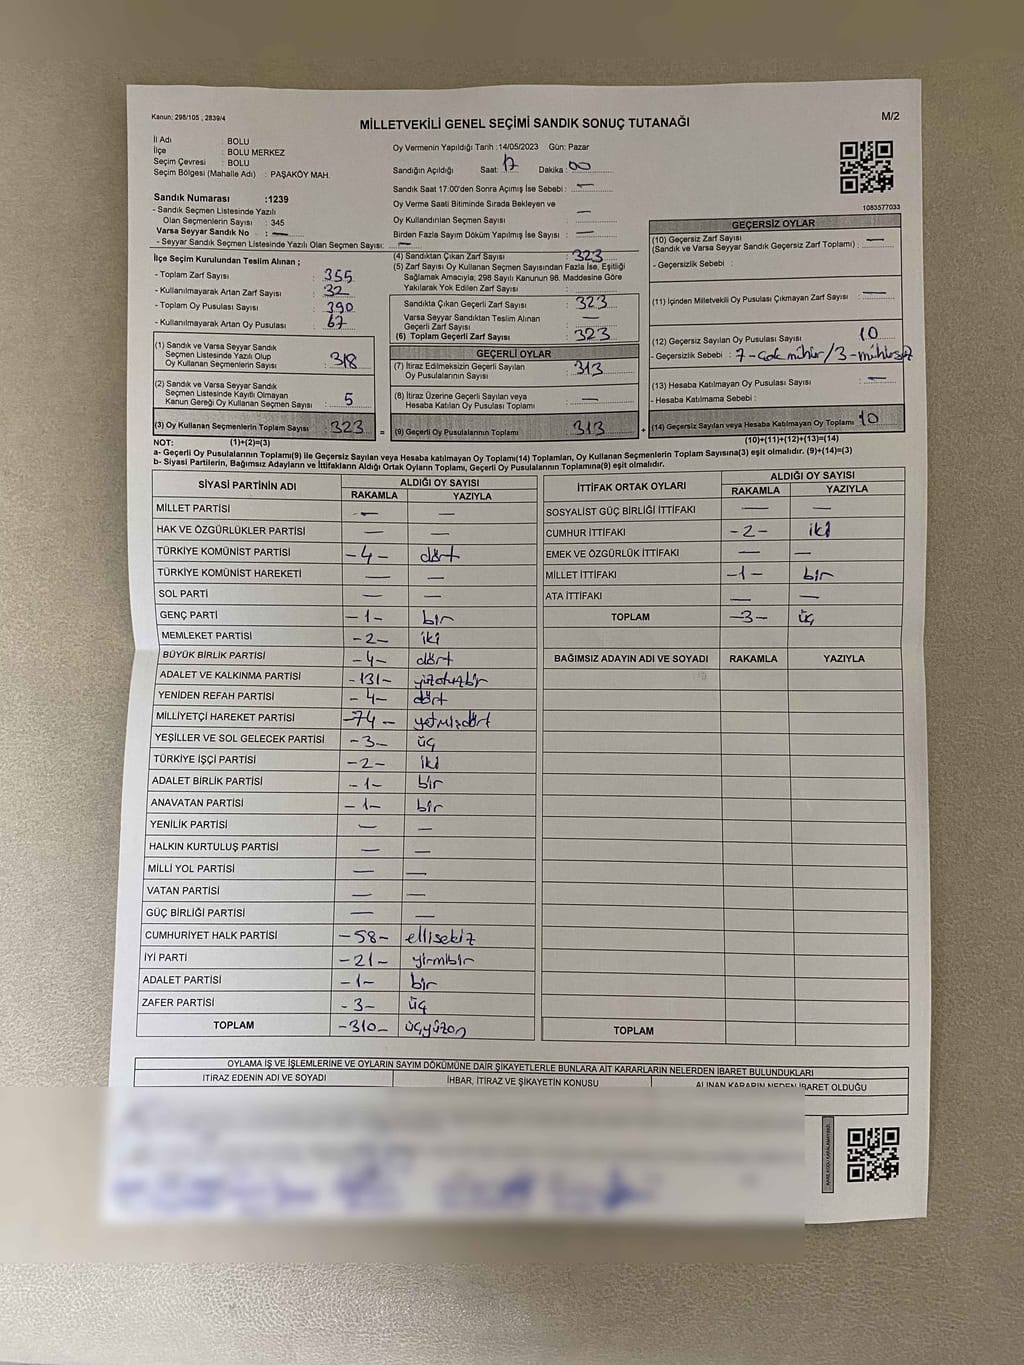 Kanun: 298/105 , 2839/4
MİLLETVEKİLİ GENEL SEÇİMİ SANDIK SONUÇ TUTANAĞI
M/2
İl Adı : BOLU
İlçe : BOLU MERKEZ
Seçim Çevresi : BOLU
Seçim Bölgesi (Mahalle Adı) : PAŞAKÖY MAH.
Sandık Numarası :1239
- Sandık Seçmen Listesinde Yazılı
Olan Seçmenlerin Sayısı : 345
Varsa Seyyar Sandık No : —
- Seyyar Sandık Seçmen Listesinde Yazılı Olan Seçmen Sayısı: —
Oy Vermenin Yapıldığı Tarih :14/05/2023 Gün: Pazar
Sandığın Açıldığı Saat: 17 Dakika : 00
Sandık Saat 17:00'den Sonra Açımış İse Sebebi : —
Oy Verme Saati Bitiminde Sırada Bekleyen ve
Oy Kullandırılan Seçmen Sayısı : —
Birden Fazla Sayım Döküm Yapılmış İse Sayısı : —
1083577033
İlçe Seçim Kurulundan Teslim Alınan ;
- Toplam Zarf Sayısı : 355
- Kullanılmayarak Artan Zarf Sayısı : 32
- Toplam Oy Pusulası Sayısı : 390
- Kullanılmayarak Artan Oy Pusulası : 67
(1) Sandık ve Varsa Seyyar Sandık
Seçmen Listesinde Yazılı Olup
Oy Kullanan Seçmenlerin Sayısı : 318
(2) Sandık ve Varsa Seyyar Sandık
Seçmen Listesinde Kayıtlı Olmayan
Kanun Gereği Oy Kullanan Seçmen Sayısı : 5
(3) Oy Kullanan Seçmenlerin Toplam Sayısı : 323 =
(4) Sandıktan Çıkan Zarf Sayısı : 323
(5) Zarf Sayısı Oy Kullanan Seçmen Sayısından Fazla İse, Eşitliği
Sağlamak Amacıyla; 298 Sayılı Kanunun 98. Maddesine Göre
Yakılarak Yok Edilen Zarf Sayısı :
Sandıkta Çıkan Geçerli Zarf Sayısı : 323
Varsa Seyyar Sandıktan Teslim Alınan
Geçerli Zarf Sayısı : —
(6) Toplam Geçerli Zarf Sayısı : 323
GEÇERLİ OYLAR
(7) İtiraz Edilmeksizin Geçerli Sayılan
Oy Pusulalarının Sayısı : 313
(8) İtiraz Üzerine Geçerli Sayılan veya
Hesaba Katılan Oy Pusulası Toplamı : —
(9) Geçerli Oy Pusulalarının Toplamı : 313 +
GEÇERSİZ OYLAR
(10) Geçersiz Zarf Sayısı
(Sandık ve Varsa Seyyar Sandık Geçersiz Zarf Toplamı) : —
- Geçersizlik Sebebi :
(11) İçinden Milletvekili Oy Pusulası Çıkmayan Zarf Sayısı : —
(12) Geçersiz Sayılan Oy Pusulası Sayısı : 10
- Geçersizlik Sebebi : 7-çok mühür/3-mühürsüz
(13) Hesaba Katılmayan Oy Pusulası Sayısı : —
- Hesaba Katılmama Sebebi :
(14) Geçersiz Sayılan veya Hesaba Katılmayan Oy Toplamı : 10
NOT: (1)+(2)=(3) (10)+(11)+(12)+(13)=(14)
a- Geçerli Oy Pusulalarının Toplamı(9) ile Geçersiz Sayılan veya Hesaba Katılmayan Oy Toplamı(14) Toplamları, Oy Kullanan Seçmenlerin Toplam Sayısına(3) eşit olmalıdır. (9)+(14)=(3)
b- Siyasi Partilerin, Bağımsız Adayların ve İttifakların Aldığı Ortak Oyların Toplamı, Geçerli Oy Pusulalarının Toplamına(9) eşit olmalıdır.
SİYASİ PARTİNİN ADI ALDIĞI OY SAYISI
RAKAMLA YAZIYLA
MİLLET PARTİSİ — —
HAK VE ÖZGÜRLÜKLER PARTİSİ — —
TÜRKİYE KOMÜNİST PARTİSİ -4- dört
TÜRKİYE KOMÜNİST HAREKETİ — —
SOL PARTİ — —
GENÇ PARTİ -1- bir
MEMLEKET PARTİSİ -2- iki
BÜYÜK BİRLİK PARTİSİ -4- dört
ADALET VE KALKINMA PARTİSİ -131- yüzotuzbir
YENİDEN REFAH PARTİSİ -4- dört
MİLLİYETÇİ HAREKET PARTİSİ -74- yetmişdört
YEŞİLLER VE SOL GELECEK PARTİSİ -3- üç
TÜRKİYE İŞÇİ PARTİSİ -2- iki
ADALET BİRLİK PARTİSİ -1- bir
ANAVATAN PARTİSİ -1- bir
YENİLİK PARTİSİ — —
HALKIN KURTULUŞ PARTİSİ — —
MİLLİ YOL PARTİSİ — —
VATAN PARTİSİ — —
GÜÇ BİRLİĞİ PARTİSİ — —
CUMHURİYET HALK PARTİSİ -58- ellisekiz
İYİ PARTİ -21- yirmibir
ADALET PARTİSİ -1- bir
ZAFER PARTİSİ -3- üç
TOPLAM -310- üçyüzon
İTTİFAK ORTAK OYLARI ALDIĞI OY SAYISI
RAKAMLA YAZIYLA
SOSYALİST GÜÇ BİRLİĞİ İTTİFAKI — —
CUMHUR İTTİFAKI -2- iki
EMEK VE ÖZGÜRLÜK İTTİFAKI — —
MİLLET İTTİFAKI -1- bir
ATA İTTİFAKI — —
TOPLAM -3- üç
BAĞIMSIZ ADAYIN ADI VE SOYADI RAKAMLA YAZIYLA
TOPLAM
OYLAMA İŞ VE İŞLEMLERİNE VE OYLARIN SAYIM DÖKÜMÜNE DAİR ŞİKAYETLERLE BUNLARA AİT KARARLARIN NELERDEN İBARET BULUNDUKLARI
İTİRAZ EDENİN ADI VE SOYADI İHBAR, İTİRAZ VE ŞİKAYETİN KONUSU ALINAN KARARIN NEDEN İBARET OLDUĞU